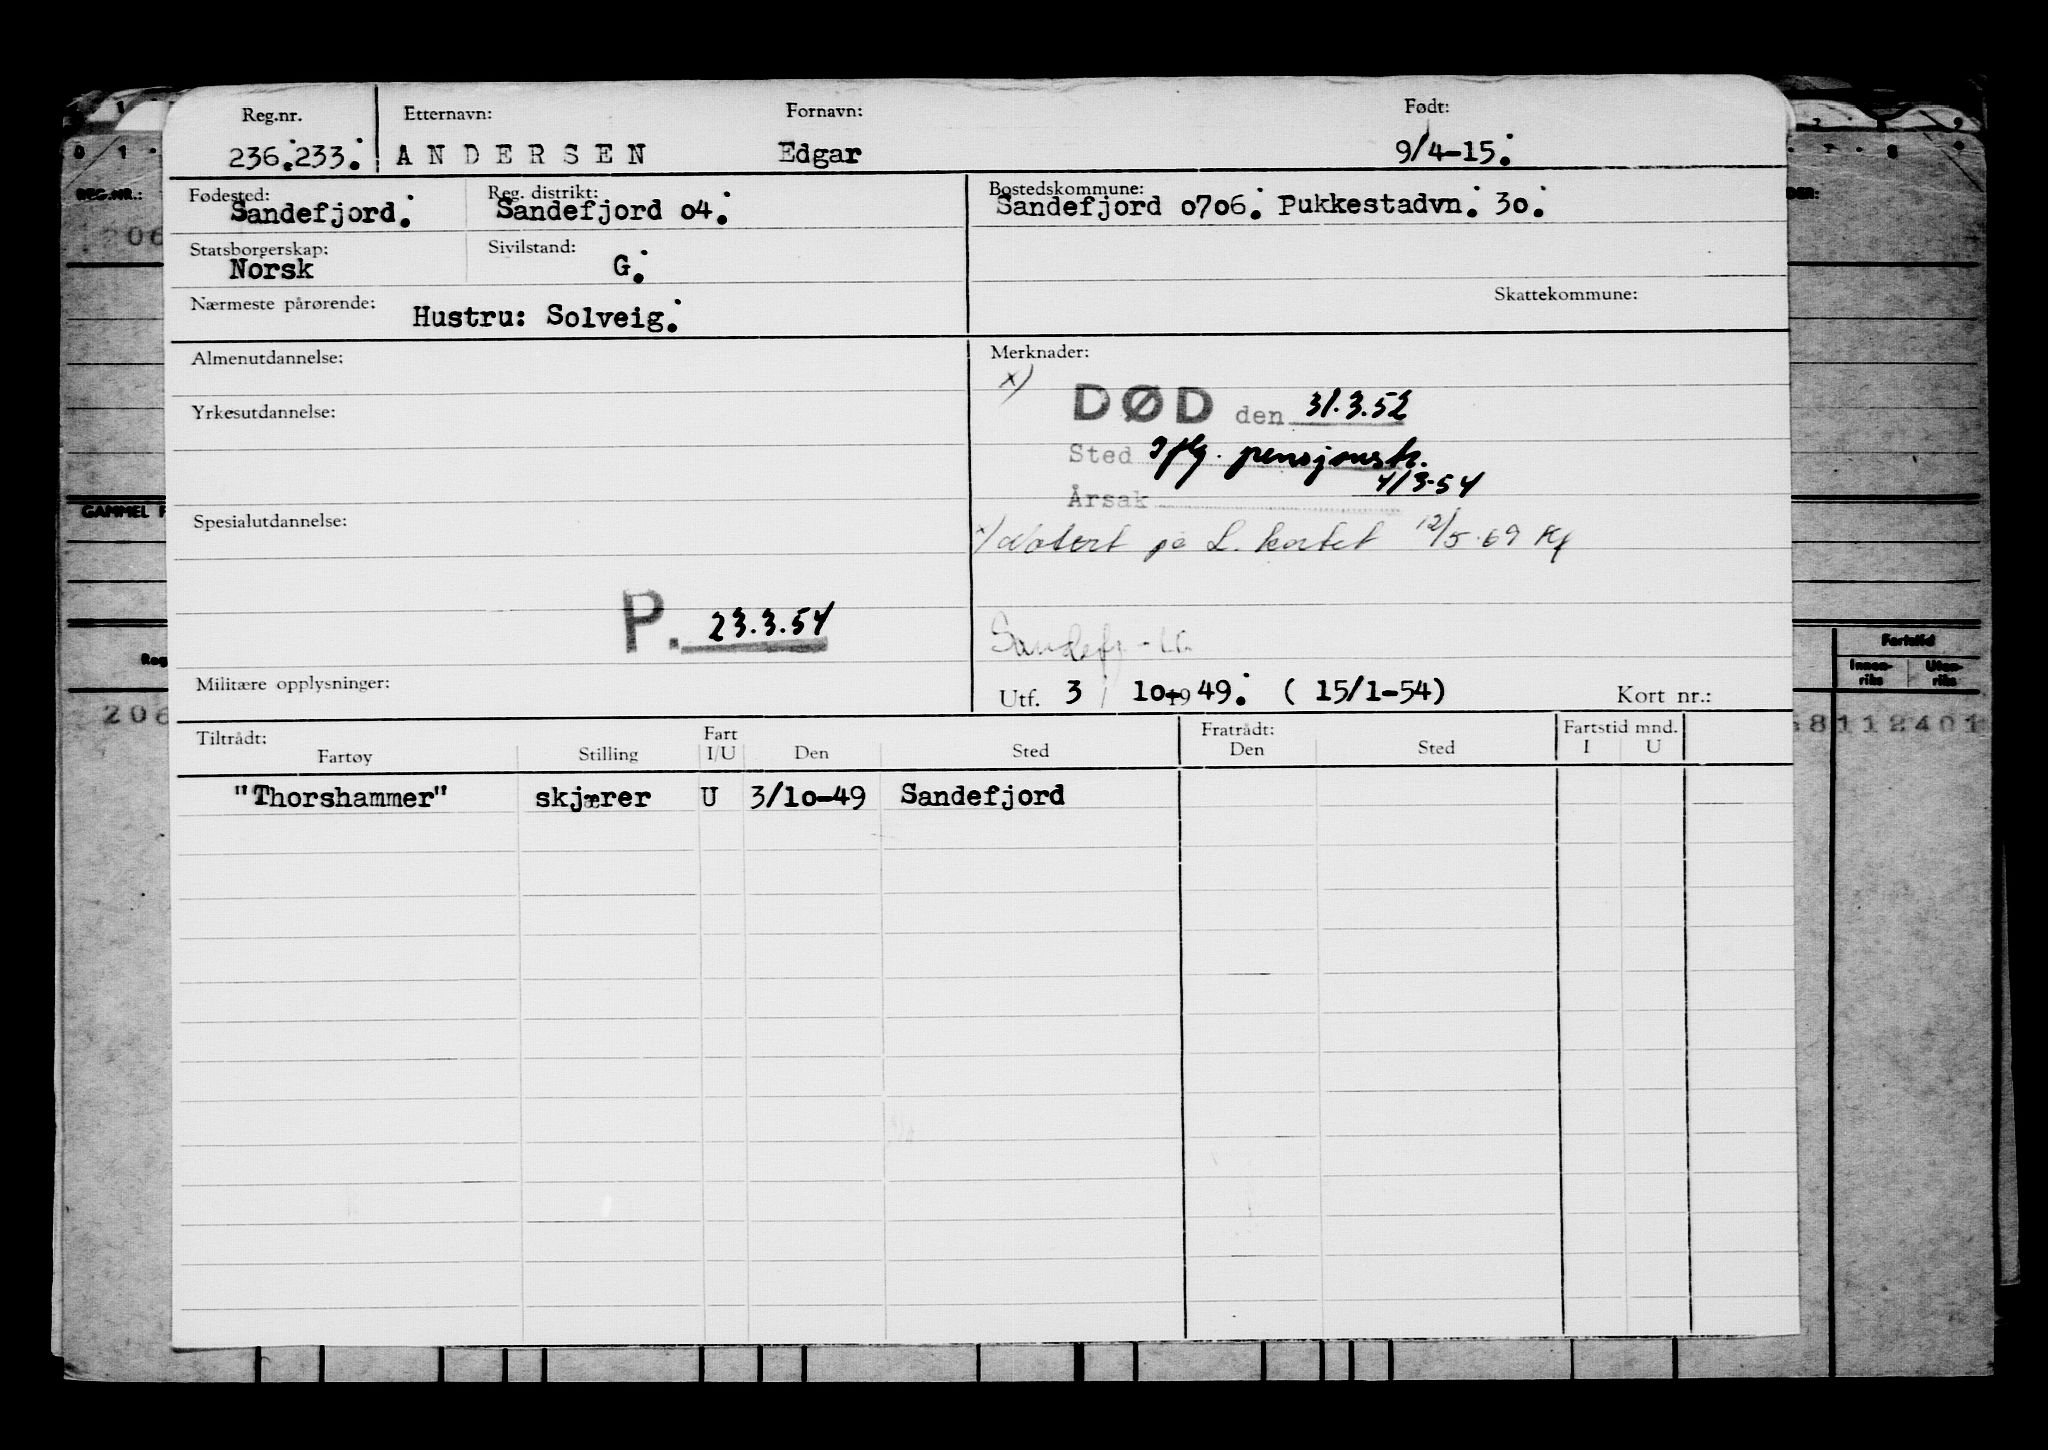 Reg.nr. Etternavn: Fornavn: Født:
236.233. ANDERSEN Edgar 9/4-15.
Fødested: Reg. distrikt: Bostedskommune:
Sandefjord. Sandefjord 04. Sandefjord 0706. Pukkestadvn. 30.
Statsborgerskap: Sivilstand:
Norsk G.
Nærmeste pårørende: Hustru: Solveig. Skattekommune:
Almenutdannelse: Merknader:
x)
DØD den 31.3.52
Yrkesutdannelse:
Sted Iflg. pensjonstr.
4/3-54
Årsak
Spesialutdannelse:
x) Notert på L. kortet 12/5-69 Kf
P. 23.3.54
Sandefj
Militære opplysninger:
Utf. 3 / 10-19 49. ( 15/1-54) Kort nr.:
Tiltrådt: Fart Fratrådt: Fartstid mnd.
Fartøy Stilling I/U Den Sted Den Sted I U
"Thorshammer" skjærer U 3/10-49 Sandefjord
REG.NR.:
206
GAMMEL
Reg
206
Fartstid
Innen-riks Uten-riks
8112401